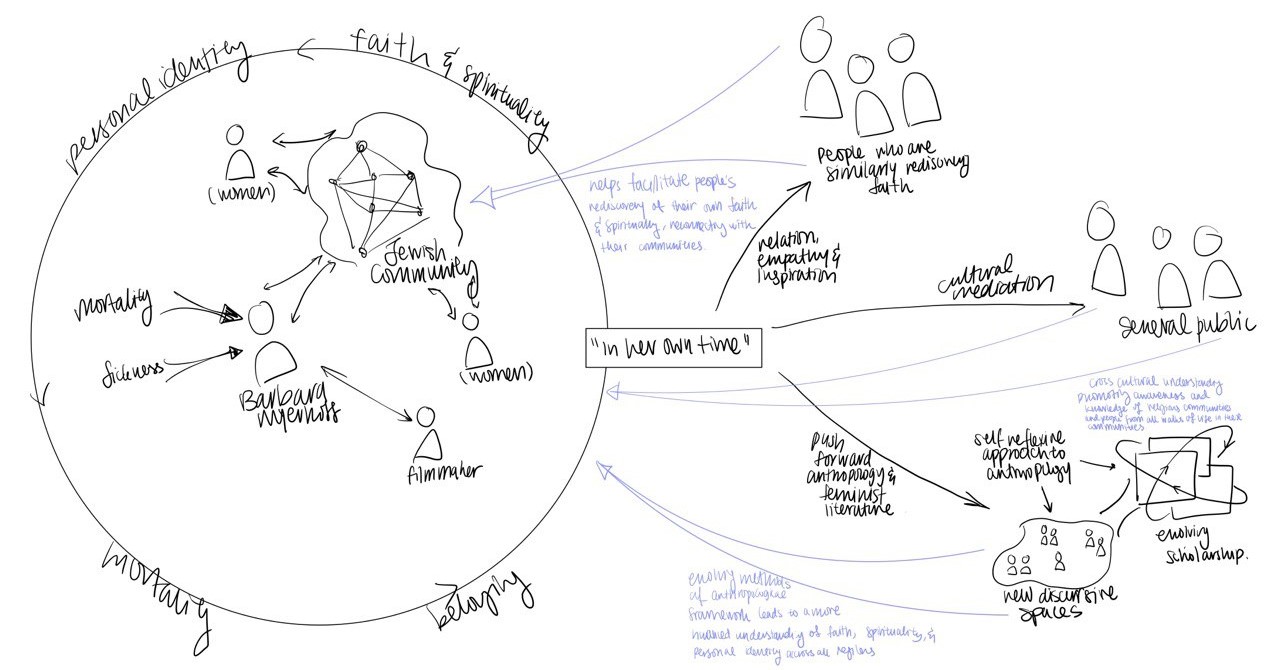 personal identity
faith & spirituality
(women)
Jewish
Community
Mortality
Sickness
Barbara
Myerhoff
(women)
filmmaker
mortality
"in her own time"
people who are
similarly rediscovering
faith
helps facilitate people's
rediscovery of their own faith
& spirituality, reconnecting with
their communities.
relation,
empathy &
inspiration
cultural
mediation
general public
cross cultural understanding
promoting awareness and
knowledge of religious communities
and people from all walks of life in these
communities
push
forward
anthropology &
feminist
literature
self reflexive
approach to
anthropology
evolving
scholarship.
new discursive
spaces
evolving methods
of anthropological
framework leads to a more
nuanced understanding of faith, spirituality, &
personal identity across all religions